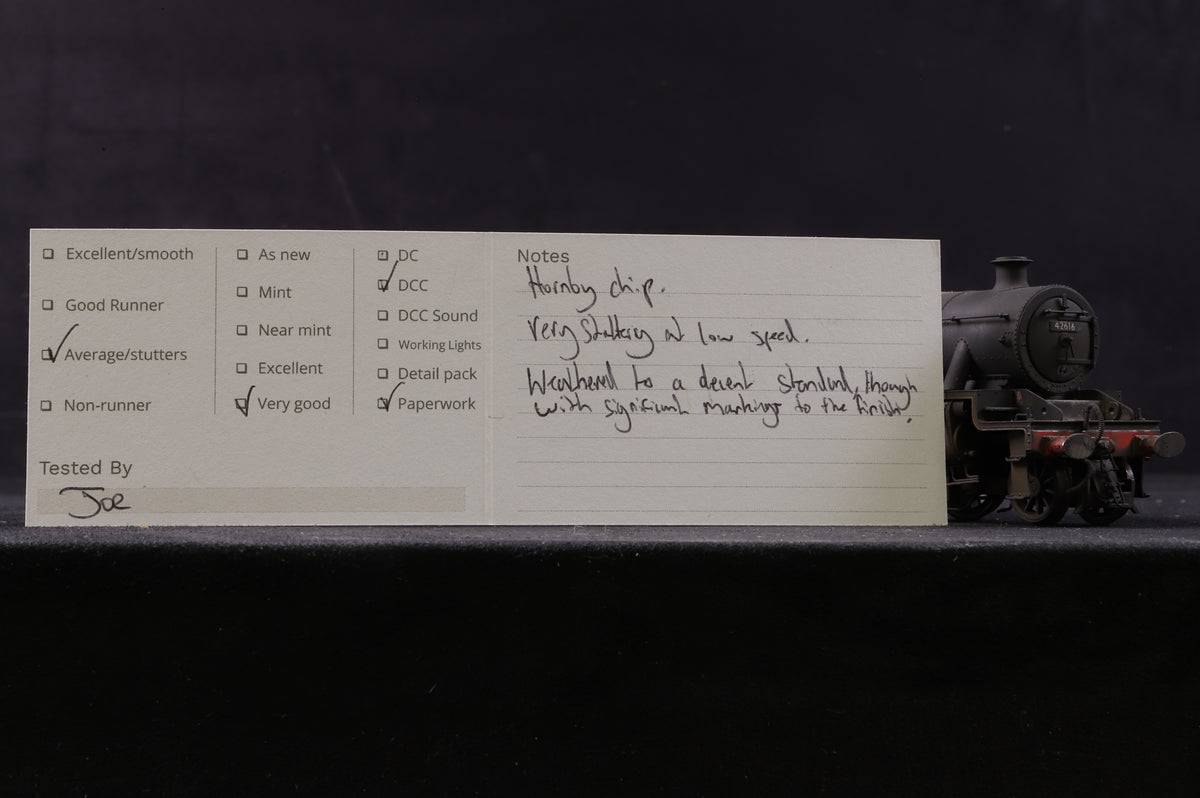 Excellent/smooth
Good Runner
Average/stutters
Non-runner
As new
Mint
Near mint
Excellent
Very good
DC
DCC
DCC Sound
Working Lights
Detail pack
Paperwork
Tested By
Joe
Notes
Hornby chip.
Very stuttery at low speed.
Weathered to a decent standard, though
with significant markings to the finish.
42616